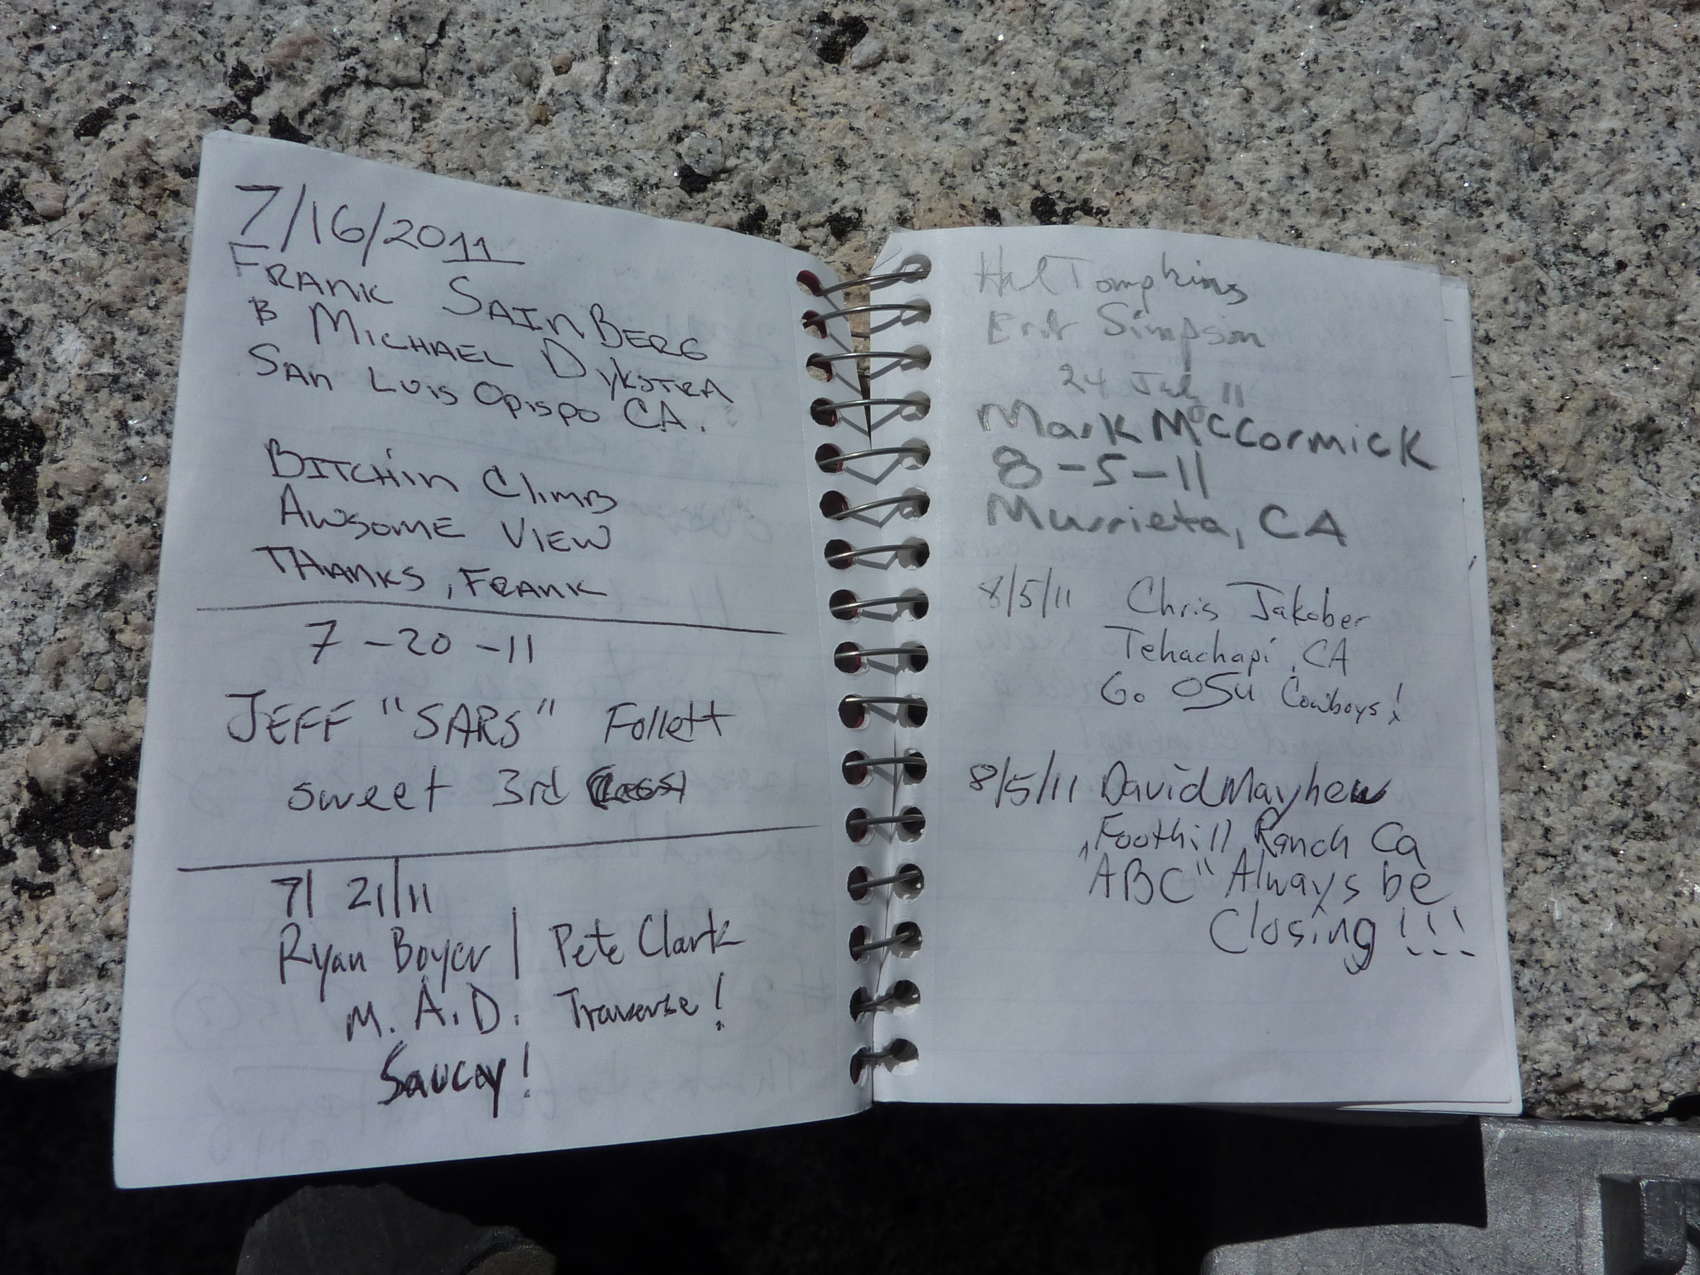 7/16/2011
FRANK SAINBERG
B MICHAEL DYKSTRA
SAN LUIS OPISPO CA.
BITCHIN CLIMB
AWSOME VIEW
THANKS, FRANK
7-20-11
JEFF "SARS" Follett
sweet 3rd class
7/21/11
Ryan Boyer | Pete Clark
M.A.D. Traverse!
Saucy!
Hal Tompkins
Erik Simpson
24 July 11
Mark McCormick
8-5-11
Murrieta, CA
8/5/11 Chris Jakober
Tehachapi, CA
Go OSU Cowboys!
8/5/11 David Mayhew
Foothill Ranch Ca
ABC "Always be
Closing!!!